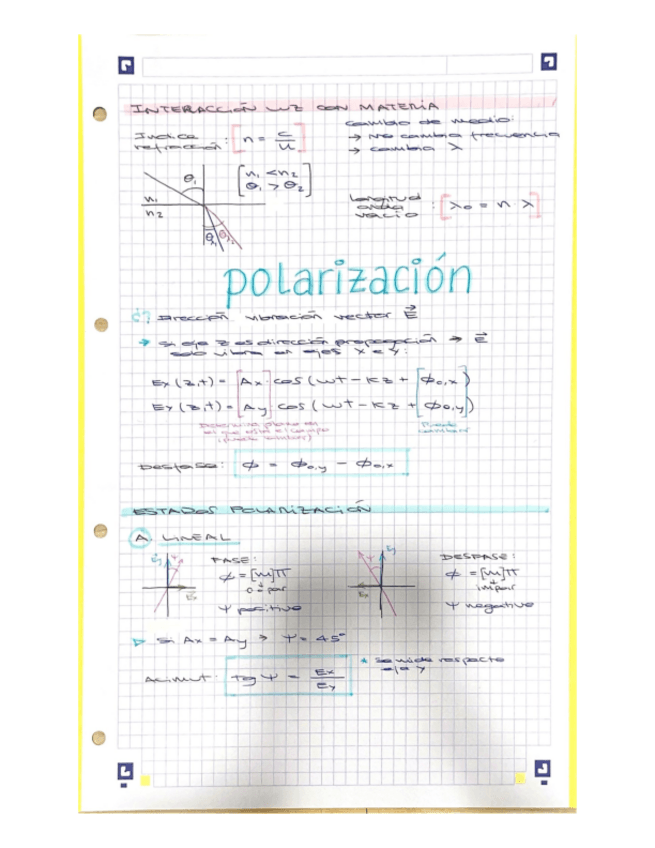 INTERACCIÓN LUZ CON MATERIA
Índice refracción: [n = c/u]
cambio de medio:
→ No cambia frecuencia
→ cambia λ
θ₁
[n₁ < n₂
θ₁ > θ₂]
n₁
n₂
longitud
onda
vacío : [λ₀ = n λ]
polarización
Dirección vibración vector E⃗
→ Si eje z es dirección propagación → E⃗
solo vibra en ejes x e y:
Ex (z,t) = [Ax] cos (wt - kz + [ϕ₀,x])
Ey (z,t) = [Ay] cos (wt - kz + [ϕ₀,y])
Determina plano en
el que está el campo
Puede
cambiar
Desfase: ϕ = ϕ₀,y - ϕ₀,x
ESTADOS POLARIZACIÓN
A. LINEAL
FASE:
ϕ = [m]π
0 = par
ψ positivo
DESFASE:
ϕ = [m]π
impar
ψ negativo
▷ Si Ax = Ay → ψ = 45°
Acimut: tg ψ = Ex/Ey
* Se mide respecto
eje y